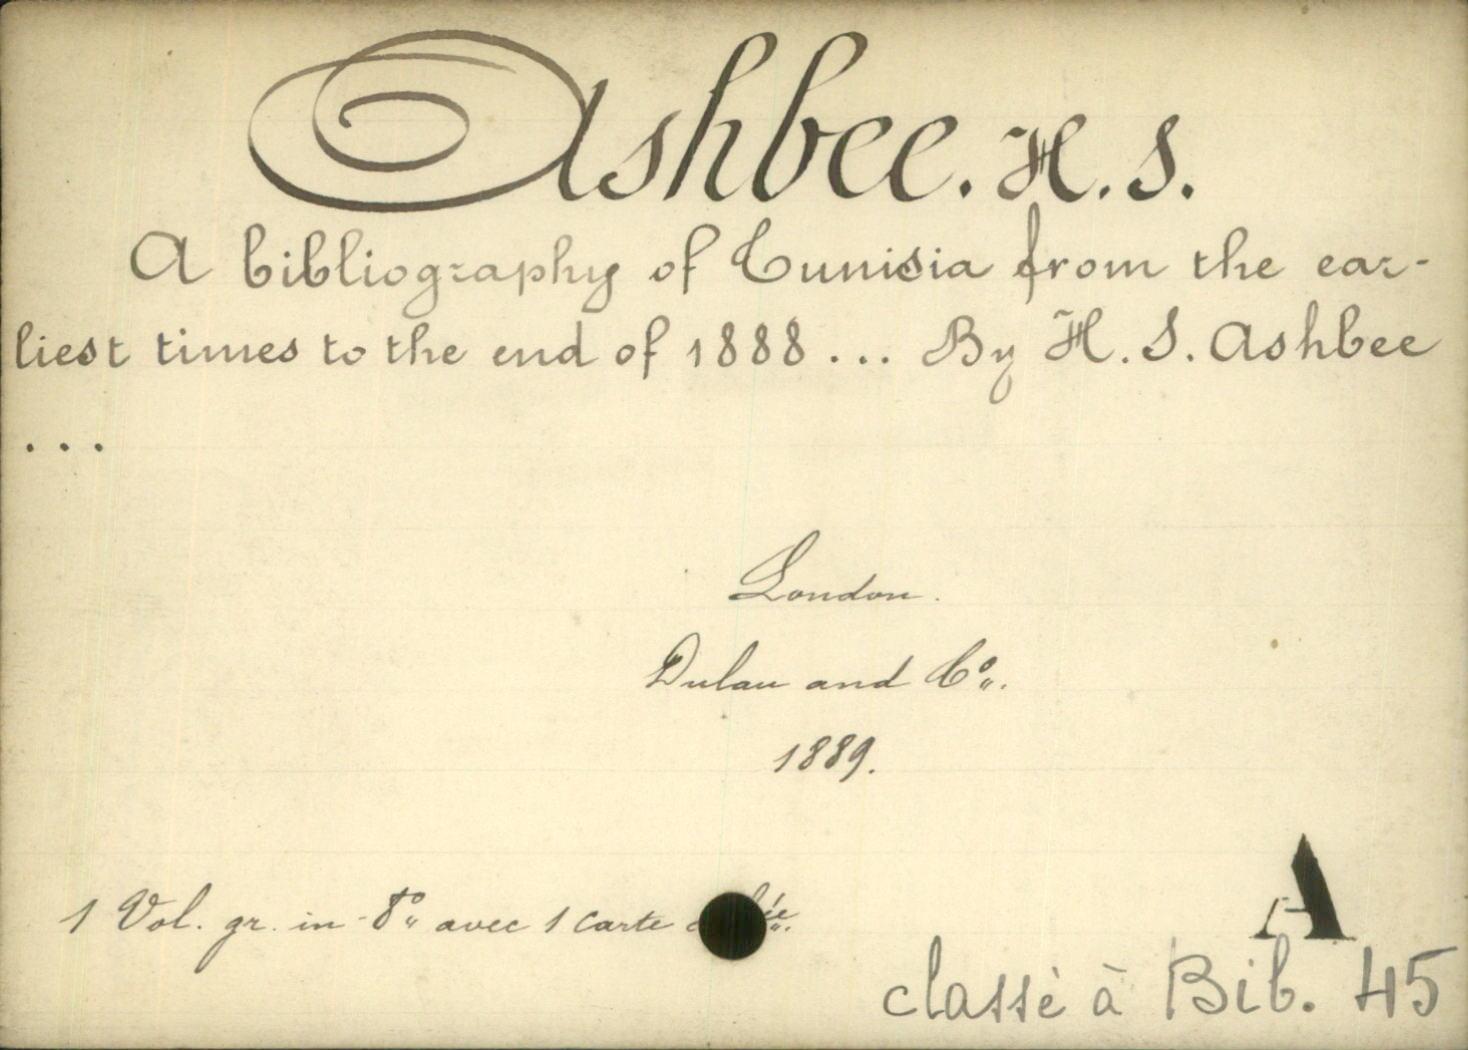 Ashbee. H. S.
A bibliography of Tunisia from the ear-
liest times to the end of 1888 ... By H. S. Ashbee
...
London.
Dulau and Cº.
1889.
1 Vol. gr. in-8º avec 1 carte
A
classé à Bib. 45